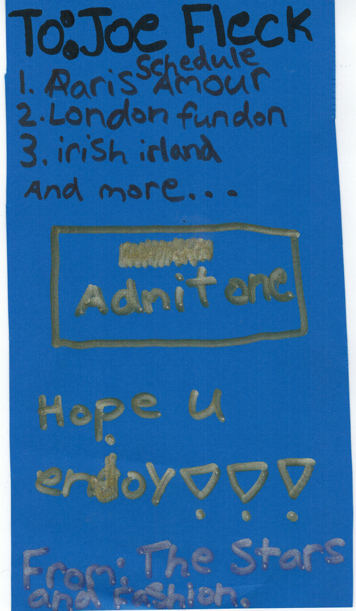 To: Joe Fleck
Schedule
1. Paris Amour
2. London fundon
3. irish irland
And more...
Admit one
Hope u
enjoy!!!
From: The Stars
and Fashion.